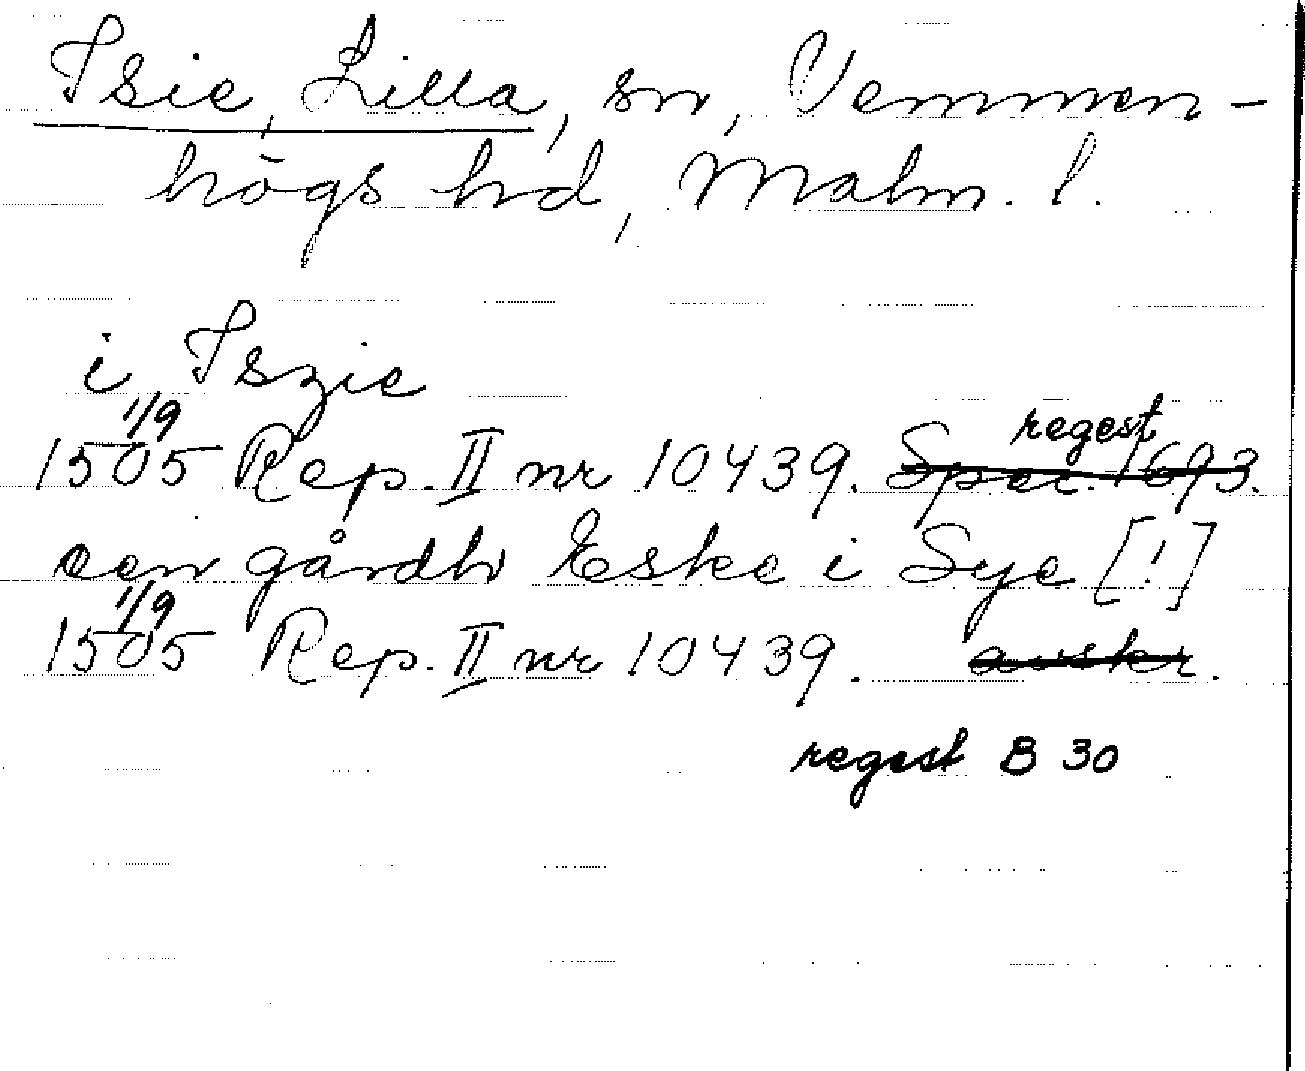 Isie, Lilla, sn, Vemmen-
högs hd, Malm. l.
i Iszie
1/9 regest
1505 Rep. II nr 10439. Sper. 1693.
een gårdh Eske i Sye [!]
1/9
1505 Rep. II nr 10439. avskr.
regest B 30